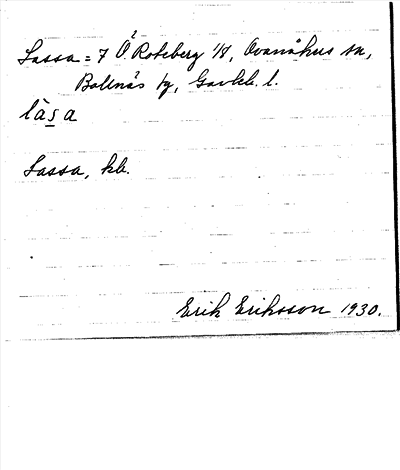 Lassa = 7 Ö. Roteberg 1/8, Ovanåkers sn,
Bollnäs fg, Gävleb. l.
làs̲a
Lassa, kb.
Erik Eriksson 1930.